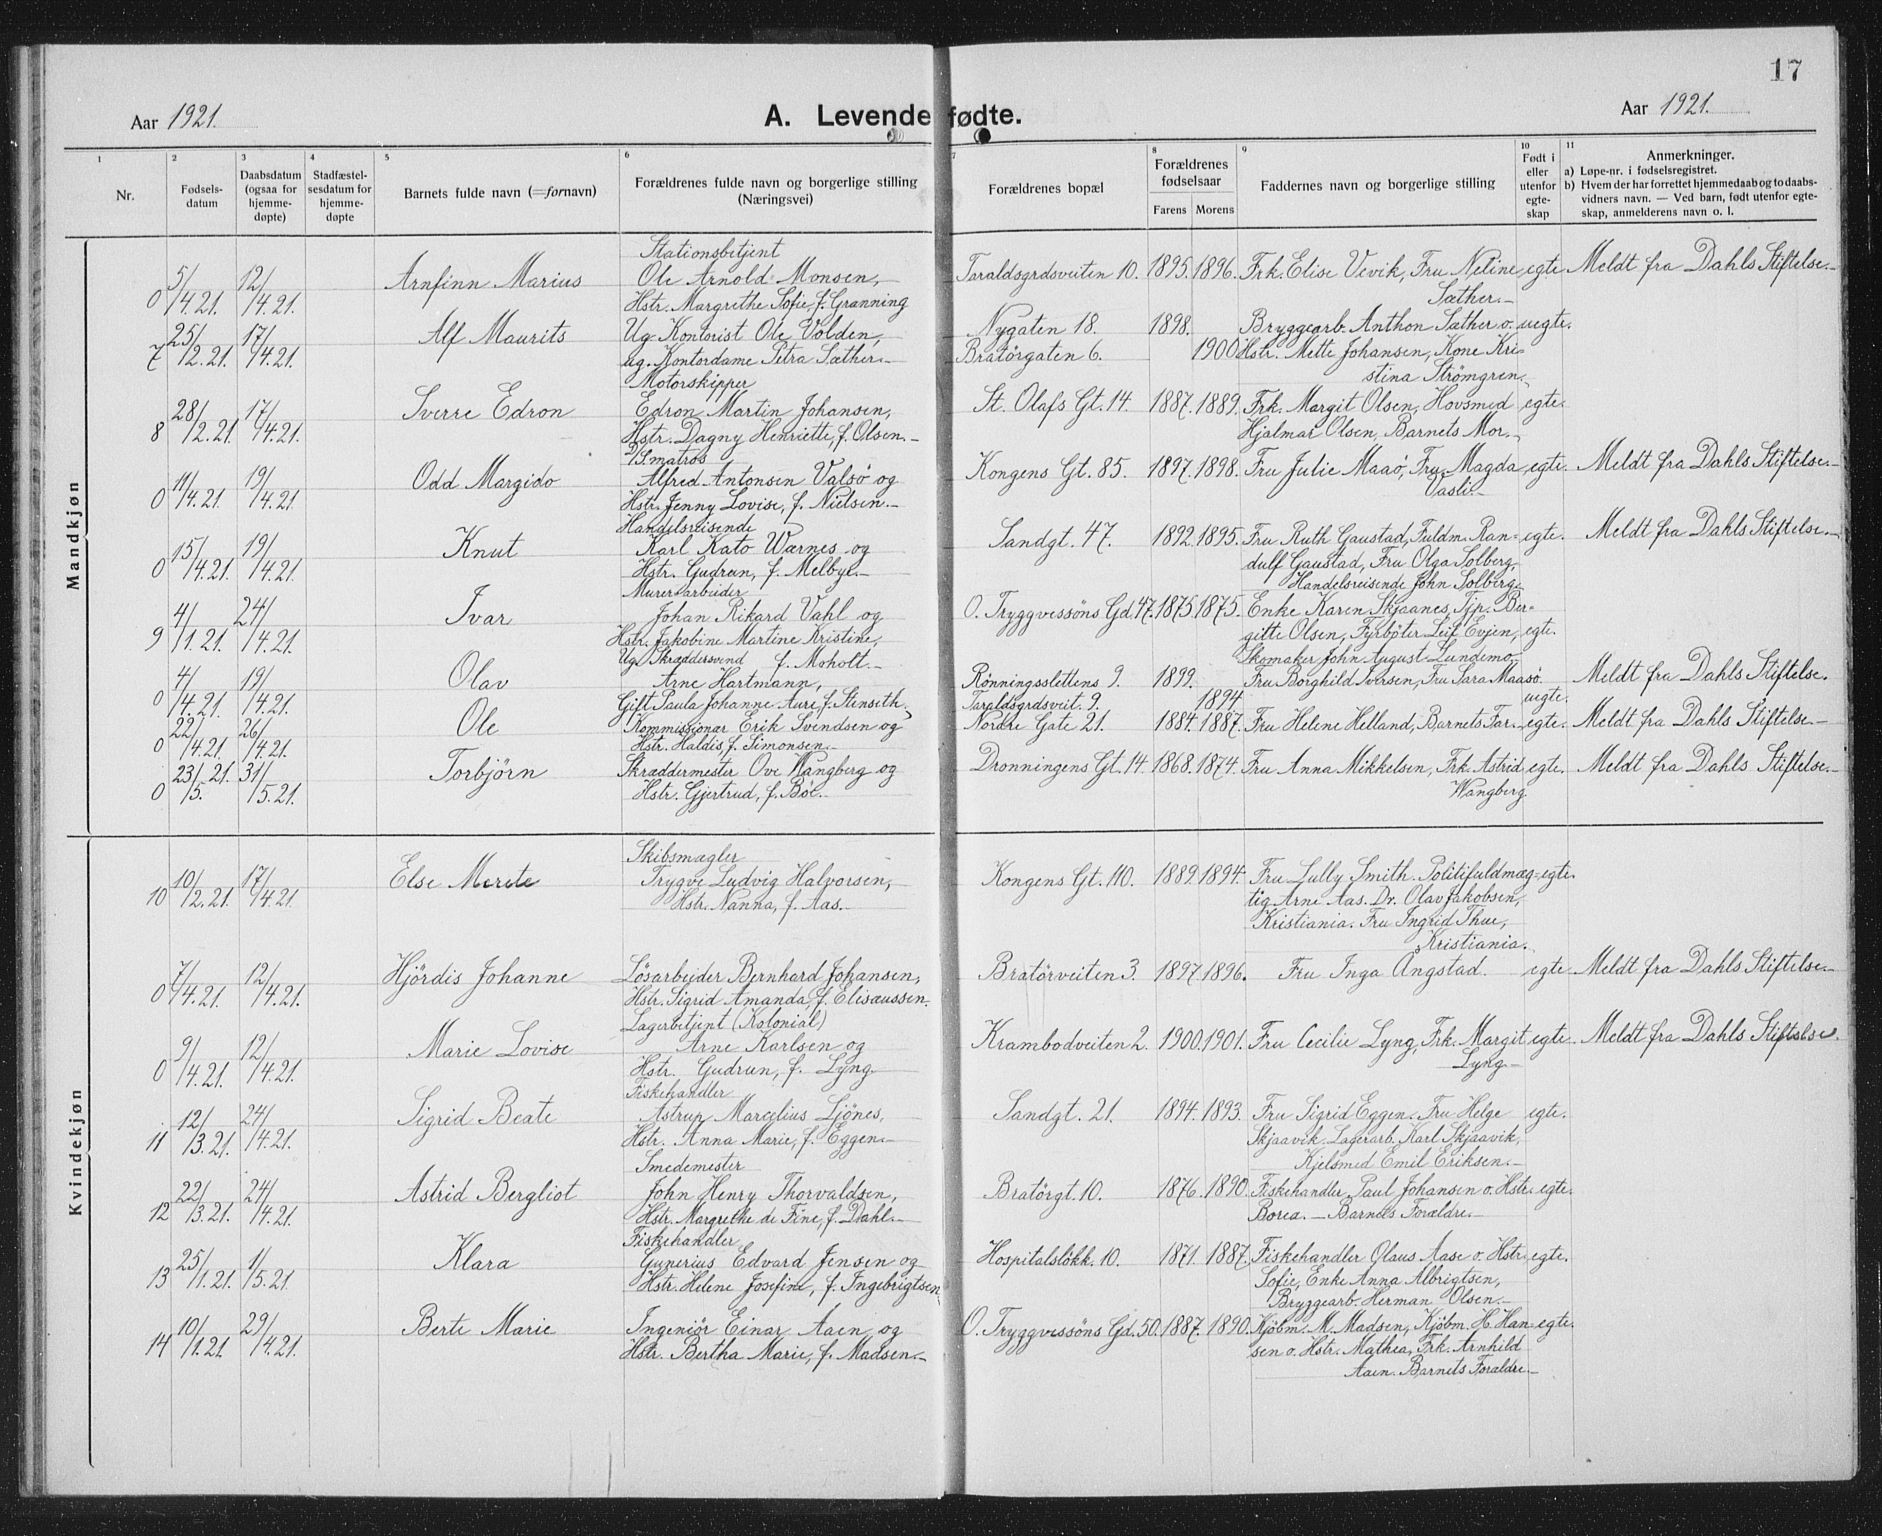 17
Aar 1921.
A. Levendefødte.
Aar 1921.
1 Nr.
2 Fødsels-datum
3 Daabsdatum (ogsaa for hjemme-døpte)
4 Stadfæstel-sesdatum for hjemme-døpte
5 Barnets fulde navn (=fornavn)
6 Forældrenes fulde navn og borgerlige stilling (Næringsvei)
7 Forældrenes bopæl
8 Forældrenes fødselsaar
Farens Morens
9 Faddernes navn og borgerlige stilling
10 Født i eller utenfor egte-skap
11 Anmerkninger.
a) Løpe-nr. i fødselsregistret.
b) Hvem der har forrettet hjemmedaab og to daabs-
vidners navn. — Ved barn, født utenfor egte-
skap, anmelderens navn o. l.
Mandkjøn
Stationsbetjent
0 5/4.21. 12/4.21. Arnfinn Marius Ole Arnold Monsen, Taraldsgrdsveiten 10. 1895. 1896. Frk. Elise Vevik, Fru Neline egte Meldt fra Dahls Stiftelse.
Hstr. Margrethe Sofie, f. Granning Sæther.
7 25/2.21. 17/4.21. Alf Maurits Ug. Kontorist Ole Volden, Nygaten 18. 1898. Bryggearb. Anthon Sæther o. uegte.
ug. Kontordame Petra Sæther. Bratörgaten 6. 1900 Hstr. Mette Johansen, Kone Kri-
Motorskipper stina Strömgren.
8 28/2.21. 17/4.21. Sverre Edron Edron Martin Johansen, St. Olafs Gt. 14. 1887. 1889. Frk. Margit Olsen, Hovsmed egte.
Hstr. Dagny Henriette, f. Olsen. Hjalmar Olsen, Barnets Mor.
D/S matros
0 11/4.21. 19/4.21. Odd Margido Alfred Antonsen Valsö og Kongens Gt. 85. 1897. 1898. Fru Julie Maaö, Fru Magda egte. Meldt fra Dahls Stiftelse.
Hstr. Jenny Lovise, f. Nielsen. Vasli.
Handelsreisende
0 15/4.21. 19/4.21. Knut Karl Kato Wærnes og Sandgt. 47. 1892. 1895. Fru Ruth Gaustad, Fuldm. Ran- egte. Meldt fra Dahls Stiftelse.
Hstr. Gudrun, f. Melbye. dulf Gaustad, Fru Olga Solberg,
Murerarbeider Handelsreisende John Solberg.
9 4/1.21. 24/4.21. Ivar Johan Rikard Vahl og O. Tryggvessöns Gd. 47. 1875. 1875. Enke Karen Skjaanes, Tjp. Bir-
Hstr. Jakobine Martine Kristine, gitte Olsen, Fyrböter Leif Evjen, egte.
f. Moholt. Skomaker John August Lundemo.
Ug. Skræddersvend
0 4/4.21. 19/4.21. Olav Arne Hartmann, Rönningsslettens 9. 1899. Fru Borghild Iversen, Fru Sara Maasö. uegte. Meldt fra Dahls Stiftelse.
Gift Paula Johanne Aure, f. Stenseth. Taraldsgrdsveit. 9. 1894
0 22/4.21. 26/4.21. Ole Kommissionær Erik Svendsen og Nordre Gate 21. 1884. 1887. Fru Helene Helland, Barnets Far. egte. Meldt fra Dahls Stiftelse
Hstr. Haldis, f. Simonsen.
0 23/5.21. 31/5.21. Torbjörn Skræddermester Ove Wangberg og Dronningens Gt. 14. 1868. 1874. Fru Anna Mikkelsen, Frk. Astrid egte. Meldt fra Dahls Stiftelse.
Hstr. Gjertrud, f. Böe. Wangberg.
Kvindekjøn
Skibsmægler
10 10/2.21. 17/4.21. Else Merete Trygve Ludvig Halvorsen, Kongens Gt. 110. 1889. 1894. Fru Lully Smith. Politifuldmæg- egte.
Hstr. Nanna, f. Aas. tig Arne Aas. Dr. Olav Jakobsen,
Kristiania. Fru Ingrid Thue,
Kristiania.
0 7/4.21. 12/4.21. Hjördis Johanne Lösarbeider Bernhard Johansen, Bratörveiten 3. 1897. 1896. Fru Inga Angstad. egte Meldt fra Dahls Stiftelse.
Hstr. Sigrid Amanda, f. Elisæussen.
Lagerbetjent (Kolonial)
0 9/4.21. 12/4.21. Marie Lovise Arne Karlsen og Krambodveiten 2. 1900. 1901. Fru Cecilie Lyng, Frk. Margit egte. Meldt fra Dahls Stiftelse.
Hstr. Gudrun, f. Lyng. Lyng.
Fiskehandler
11 12/3.21. 24/4.21. Sigrid Beate Astrup Marcelius Ljönes, Sandgt. 21. 1894. 1893. Fru Sigrid Eggen. Fru Helge egte.
Hstr. Anna Marie, f. Eggen. Skjaavik. Lagerarb. Karl Skjaavik,
Kjelsmed Emil Eriksen.
Smedemester
12 22/3.21. 24/4.21. Astrid Bergliot John Henry Thorvaldsen, Bratörgt. 10. 1876. 1890. Fiskehandler Paul Johansen o. Hstr. egte.
Hstr. Margrethe de Fine, f. Dahl. Borea. — Barnets Forældre.
Fiskehandler
13 25/1.21. 1/5.21 Klara Gunerius Edvard Jensen og Hospitalslökk. 10. 1871. 1887. Fiskehandler Olaus Aase o. Hstr. egte.
Hstr. Helene Josefine, f. Ingebrigtsen Sofie, Enke Anna Albrigtsen,
Bryggearb. Herman Olsen.
14 10/1.21. 29/4.21. Berte Marie Ingeniör Einar Aaen og O. Tryggvessöns Gd. 50. 1887. 1890. Kjöbm. M. Madsen, Kjöbm. H. Han- egte.
Hstr. Bertha Marie, f. Madsen. sen o. Hstr. Mathea, Frk. Arnhild
Aaen. Barnets Forældre.